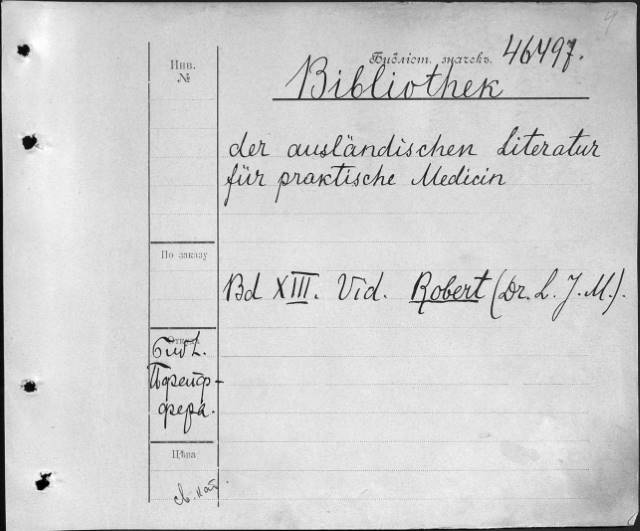 9
Инв.
№
Библіот. значекъ.
46497.
Bibliothek
der ausländischen Literatur
für praktische Medicin
По заказу
Bd XIII. Vid. Robert (Dr. L. J. M.).
Библ.
Пфейф-
фера.
Цѣна
св. кат.